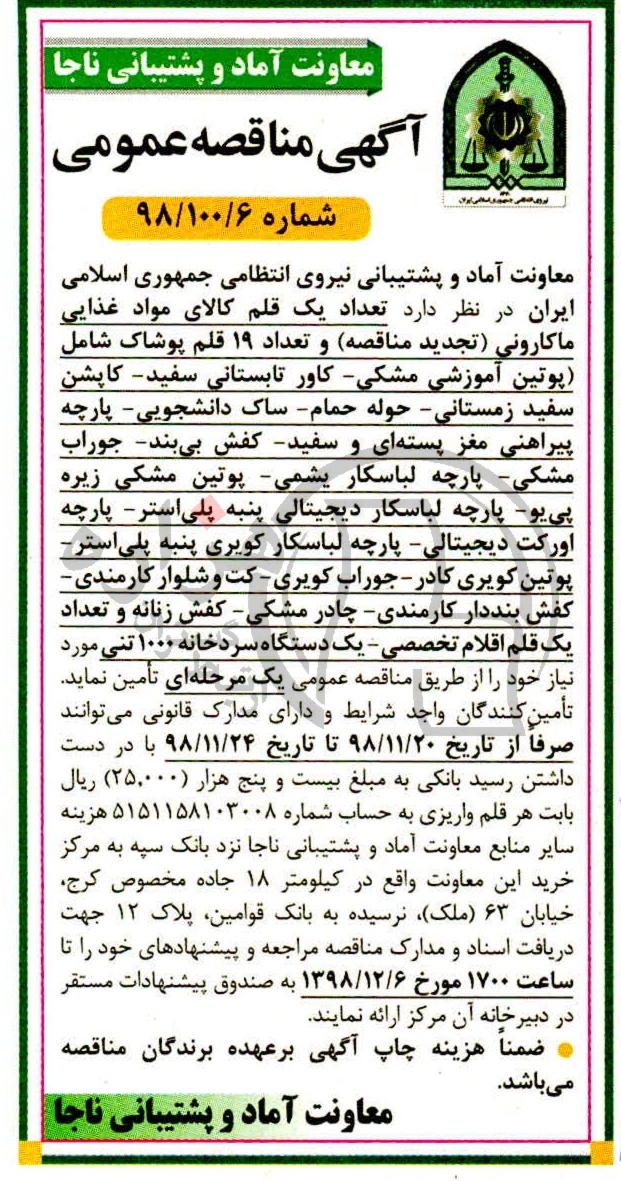 معاونت آماد و پشتیبانی ناجا
آگهی مناقصه عمومی
شماره ۹۸/۱۰۰/۶
نیروی انتظامی جمهوری اسلامی ایران
معاونت آماد و پشتیبانی نیروی انتظامی جمهوری اسلامی
ایران در نظر دارد تعداد یک قلم کالای مواد غذایی
ماکارونی (تجدید مناقصه) و تعداد ۱۹ قلم پوشاک شامل
(پوتین آموزشی مشکی- کاور تابستانی سفید- کاپشن
سفید زمستانی- حوله حمام- ساک دانشجویی- پارچه
پیراهنی مغز پسته‌ای و سفید- کفش بی‌بند- جوراب
مشکی- پارچه لباسکار یشمی- پوتین مشکی زیره
پی‌یو- پارچه لباسکار دیجیتالی پنبه پلی‌استر- پارچه
اورکت دیجیتالی- پارچه لباسکار کویری پنبه پلی‌استر-
پوتین کویری کادر-جوراب کویری-کت و شلوار کارمندی-
کفش بنددار کارمندی- چادر مشکی- کفش زنانه و تعداد
یک قلم اقلام تخصصی- یک دستگاه سردخانه ۱۰۰۰ تنی مورد
نیاز خود را از طریق مناقصه عمومی یک مرحله‌ای تأمین نماید.
تأمین‌کنندگان واجد شرایط و دارای مدارک قانونی می‌توانند
صرفاً از تاریخ ۹۸/۱۱/۲۰ تا تاریخ ۹۸/۱۱/۲۴ با در دست
داشتن رسید بانکی به مبلغ بیست و پنج هزار (۲۵,۰۰۰) ریال
بابت هر قلم واریزی به حساب شماره ۵۱۵۱۱۵۸۱۰۳۰۰۸ هزینه
سایر منابع معاونت آماد و پشتیبانی ناجا نزد بانک سپه به مرکز
خرید این معاونت واقع در کیلومتر ۱۸ جاده مخصوص کرج،
خیابان ۶۳ (ملک)، نرسیده به بانک قوامین، پلاک ۱۲ جهت
دریافت اسناد و مدارک مناقصه مراجعه و پیشنهادهای خود را تا
ساعت ۱۷۰۰ مورخ ۱۳۹۸/۱۲/۶ به صندوق پیشنهادات مستقر
در دبیرخانه آن مرکز ارائه نمایند.
ضمناً هزینه چاپ آگهی برعهده برندگان مناقصه
می‌باشد.
معاونت آماد و پشتیبانی ناجا